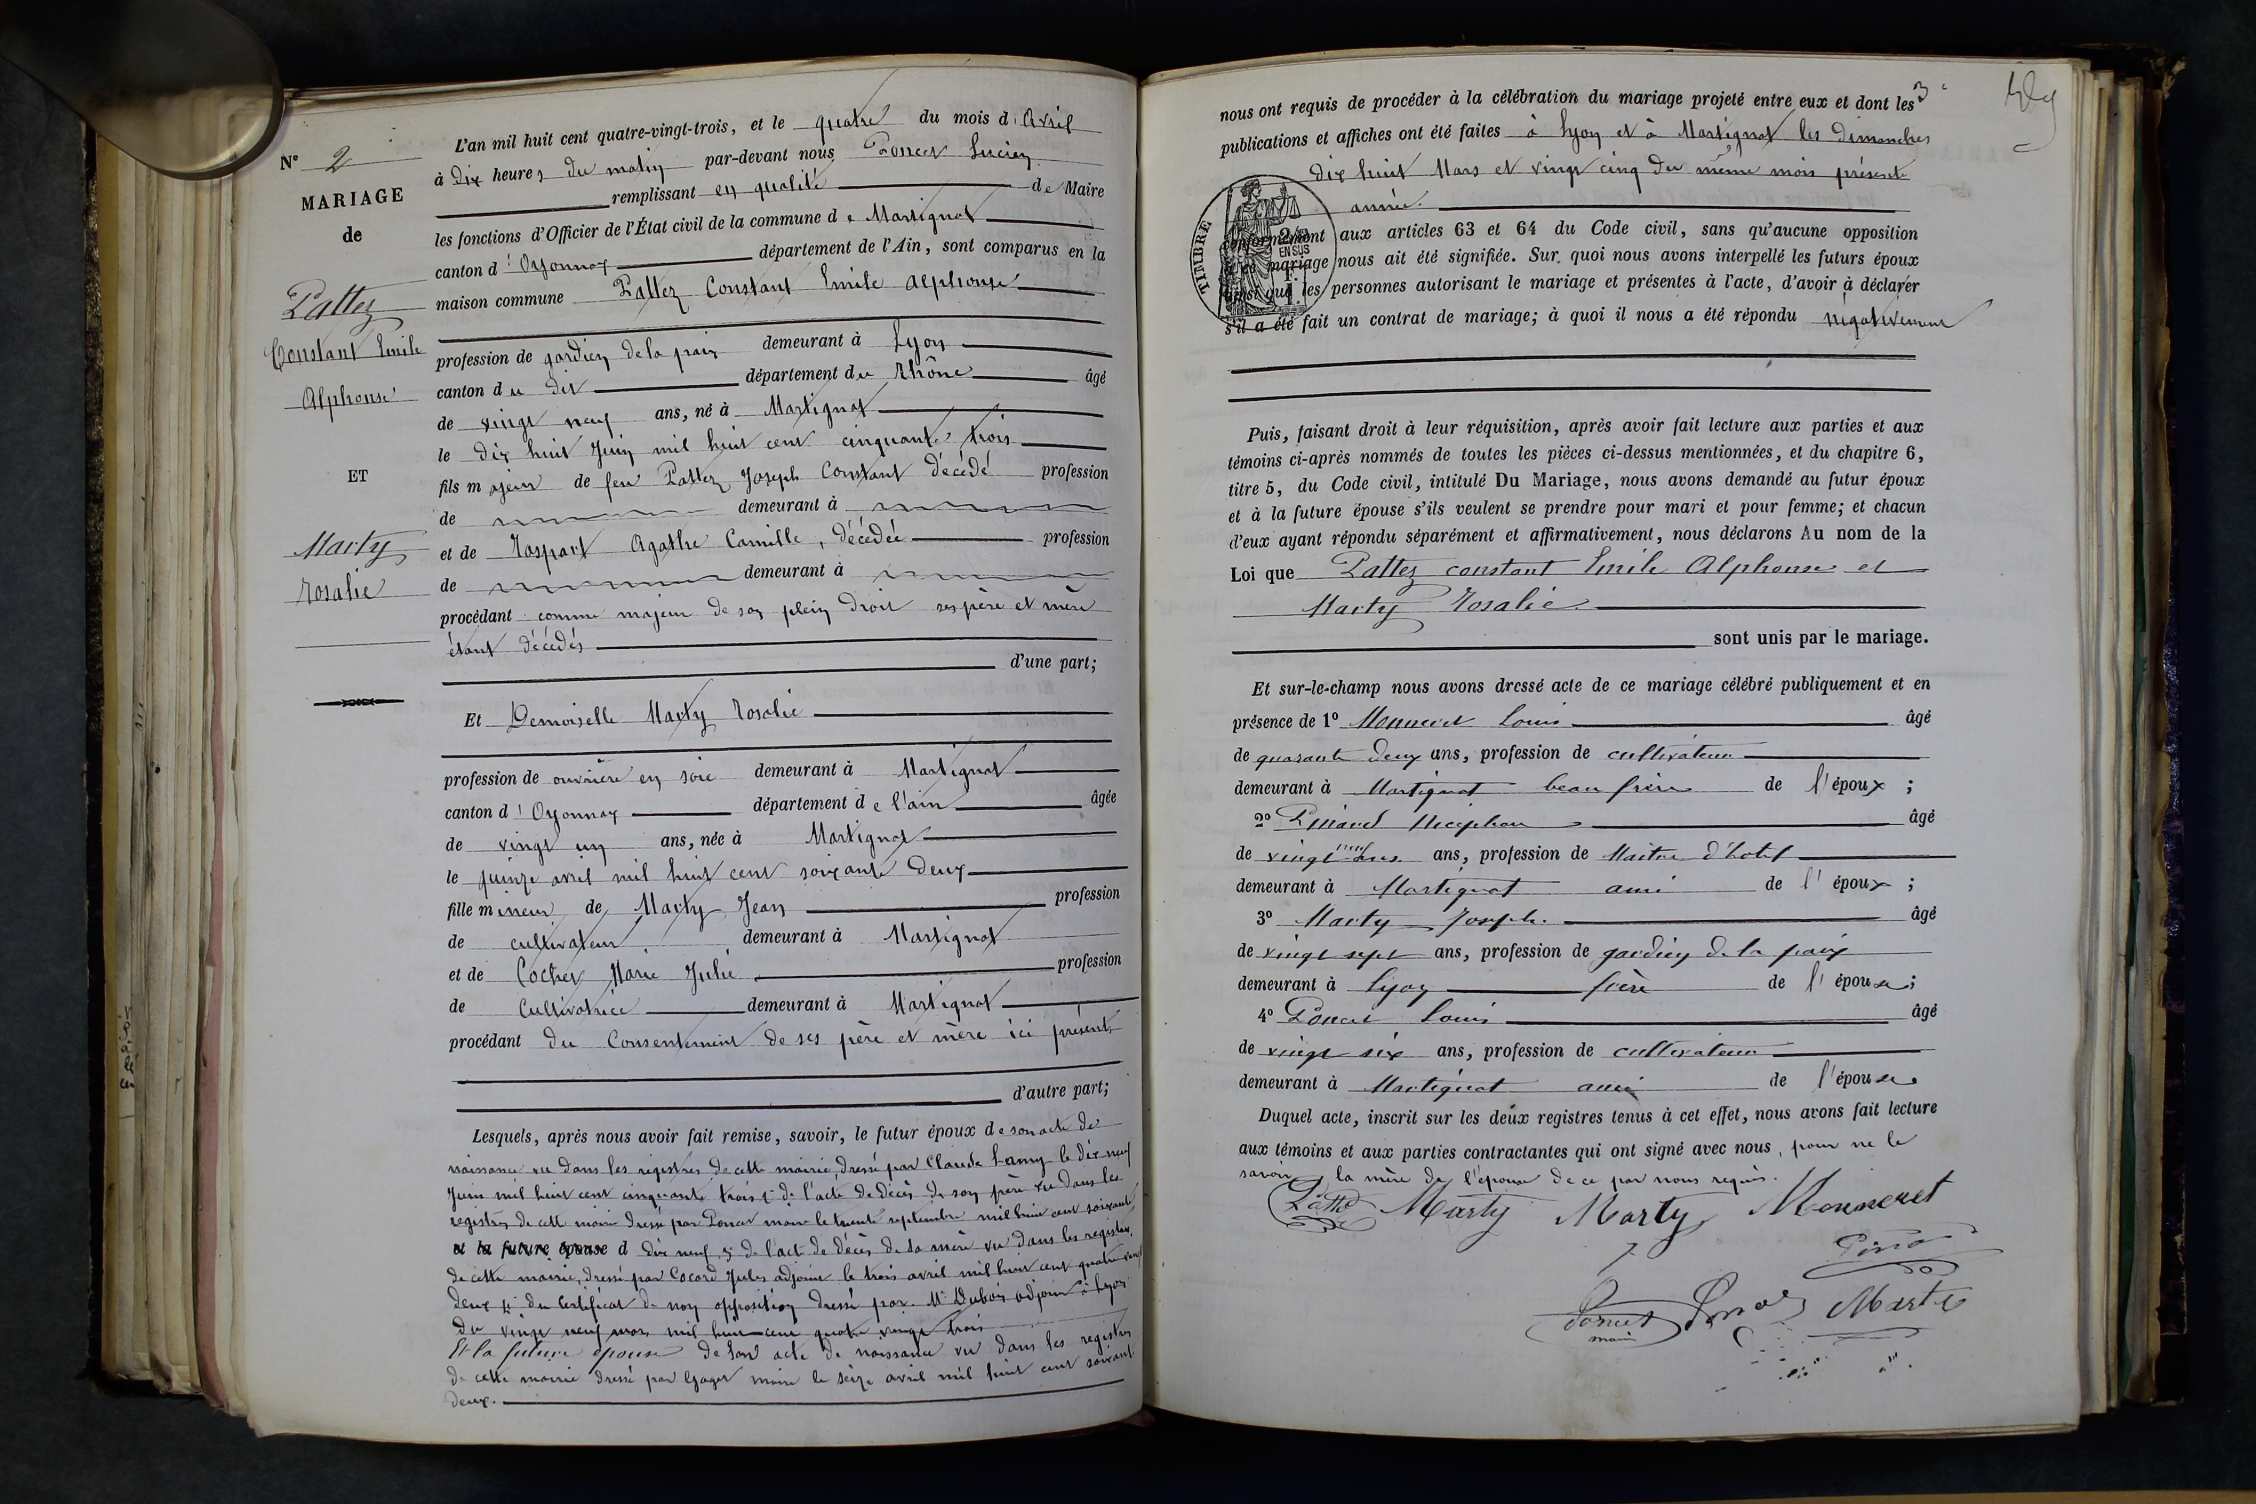 N° 2
MARIAGE
de
Pattez
Constant Emile
Alphonse
ET
Marty
Rosalie
L'an mil huit cent quatre-vingt-trois, et le quatre du mois d'Avril
à dix heures du matin par-devant nous Poncet Lucien
remplissant en qualité de Maire
les fonctions d'Officier de l'État civil de la commune de Martignat
canton d'Oyonnax département de l'Ain, sont comparus en la
maison commune Pattez Constant Emile Alphonse
profession de gardien de la paix demeurant à Lyon
canton du dit département du Rhône âgé
de vingt neuf ans, né à Martignat
le dix huit Juin mil huit cent cinquante trois
fils majeur de feu Pattez Joseph Constant décédé profession
de demeurant à
et de Rospart Agathe Camille, décédée profession
de demeurant à
procédant comme majeur de son plein droit ses père et mère
étant décédés
d'une part;
Et Demoiselle Marty Rosalie
profession de ouvrière en soie demeurant à Martignat
canton d'Oyonnax département de l'ain âgée
de vingt un ans, née à Martignat
le quinze avril mil huit cent soixante deux
fille mineur de Marty Jean profession
de cultivateur demeurant à Martignat
et de Cochet Marie Julie profession
de Cultivatrice demeurant à Martignat
procédant du Consentement de ses père et mère ici présents
d'autre part;
Lesquels, après nous avoir fait remise, savoir, le futur époux de son acte de
naissance vu dans les registres de cette mairie, dressé par Claude Lamy le dix neuf
Juin mil huit cent cinquante trois de l'acte de décès de son père vu dans les
registres de cette mairie dressé par Poncet maire le trente septembre mil huit cent soixante
et la future épouse d dix neuf, 3° de l'acte de décès de sa mère vu dans les registres
de cette mairie, dressé par Cocard Jules adjoint le trois avril mil huit cent quatre vingt
deux 4° du Certificat de non opposition dressé par Mr Dubois adjoint à Lyon
du vingt neuf mars mil huit cent quatre vingt trois
Et la future épouse de son acte de naissance vu dans les registres
de cette mairie dressé par maire le seize avril mil huit cent soixante
deux.
3
nous ont requis de procéder à la célébration du mariage projeté entre eux et dont les
publications et affiches ont été faites à Lyon et à Martignat les dimanches
dix huit Mars et vingt cinq du même mois présente
année.
TIMBRE
2/10
EN SUS
conformément aux articles 63 et 64 du Code civil, sans qu'aucune opposition
à ce mariage nous ait été signifiée. Sur quoi nous avons interpellé les futurs époux
ainsi que les personnes autorisant le mariage et présentes à l'acte, d'avoir à déclarer
s'il a été fait un contrat de mariage; à quoi il nous a été répondu négativement
Puis, faisant droit à leur réquisition, après avoir fait lecture aux parties et aux
témoins ci-après nommés de toutes les pièces ci-dessus mentionnées, et du chapitre 6,
titre 5, du Code civil, intitulé Du Mariage, nous avons demandé au futur époux
et à la future épouse s'ils veulent se prendre pour mari et pour femme; et chacun
d'eux ayant répondu séparément et affirmativement, nous déclarons Au nom de la
Loi que Pattez constant Emile Alphonse et
Marty Rosalie
sont unis par le mariage.
Et sur-le-champ nous avons dressé acte de ce mariage célébré publiquement et en
présence de 1° Monneret Louis âgé
de quarante deux ans, profession de cultivateur
demeurant à Martignat beau frère de l'époux;
2° Pinard âgé
de vingt ans, profession de Maître d'hotel
demeurant à Martignat ami de l'époux;
3° Marty Joseph. âgé
de vingt sept ans, profession de gardien de la paix
demeurant à Lyon frère de l'épouse;
4° Poncet Louis âgé
de vingt six ans, profession de cultivateur
demeurant à Martignat ami de l'épouse
Duquel acte, inscrit sur les deux registres tenus à cet effet, nous avons fait lecture
aux témoins et aux parties contractantes qui ont signé avec nous, pour ne le
savoir la mère de l'épouse de ce par nous requis.
Marty Marty Monneret
Poncet
maire